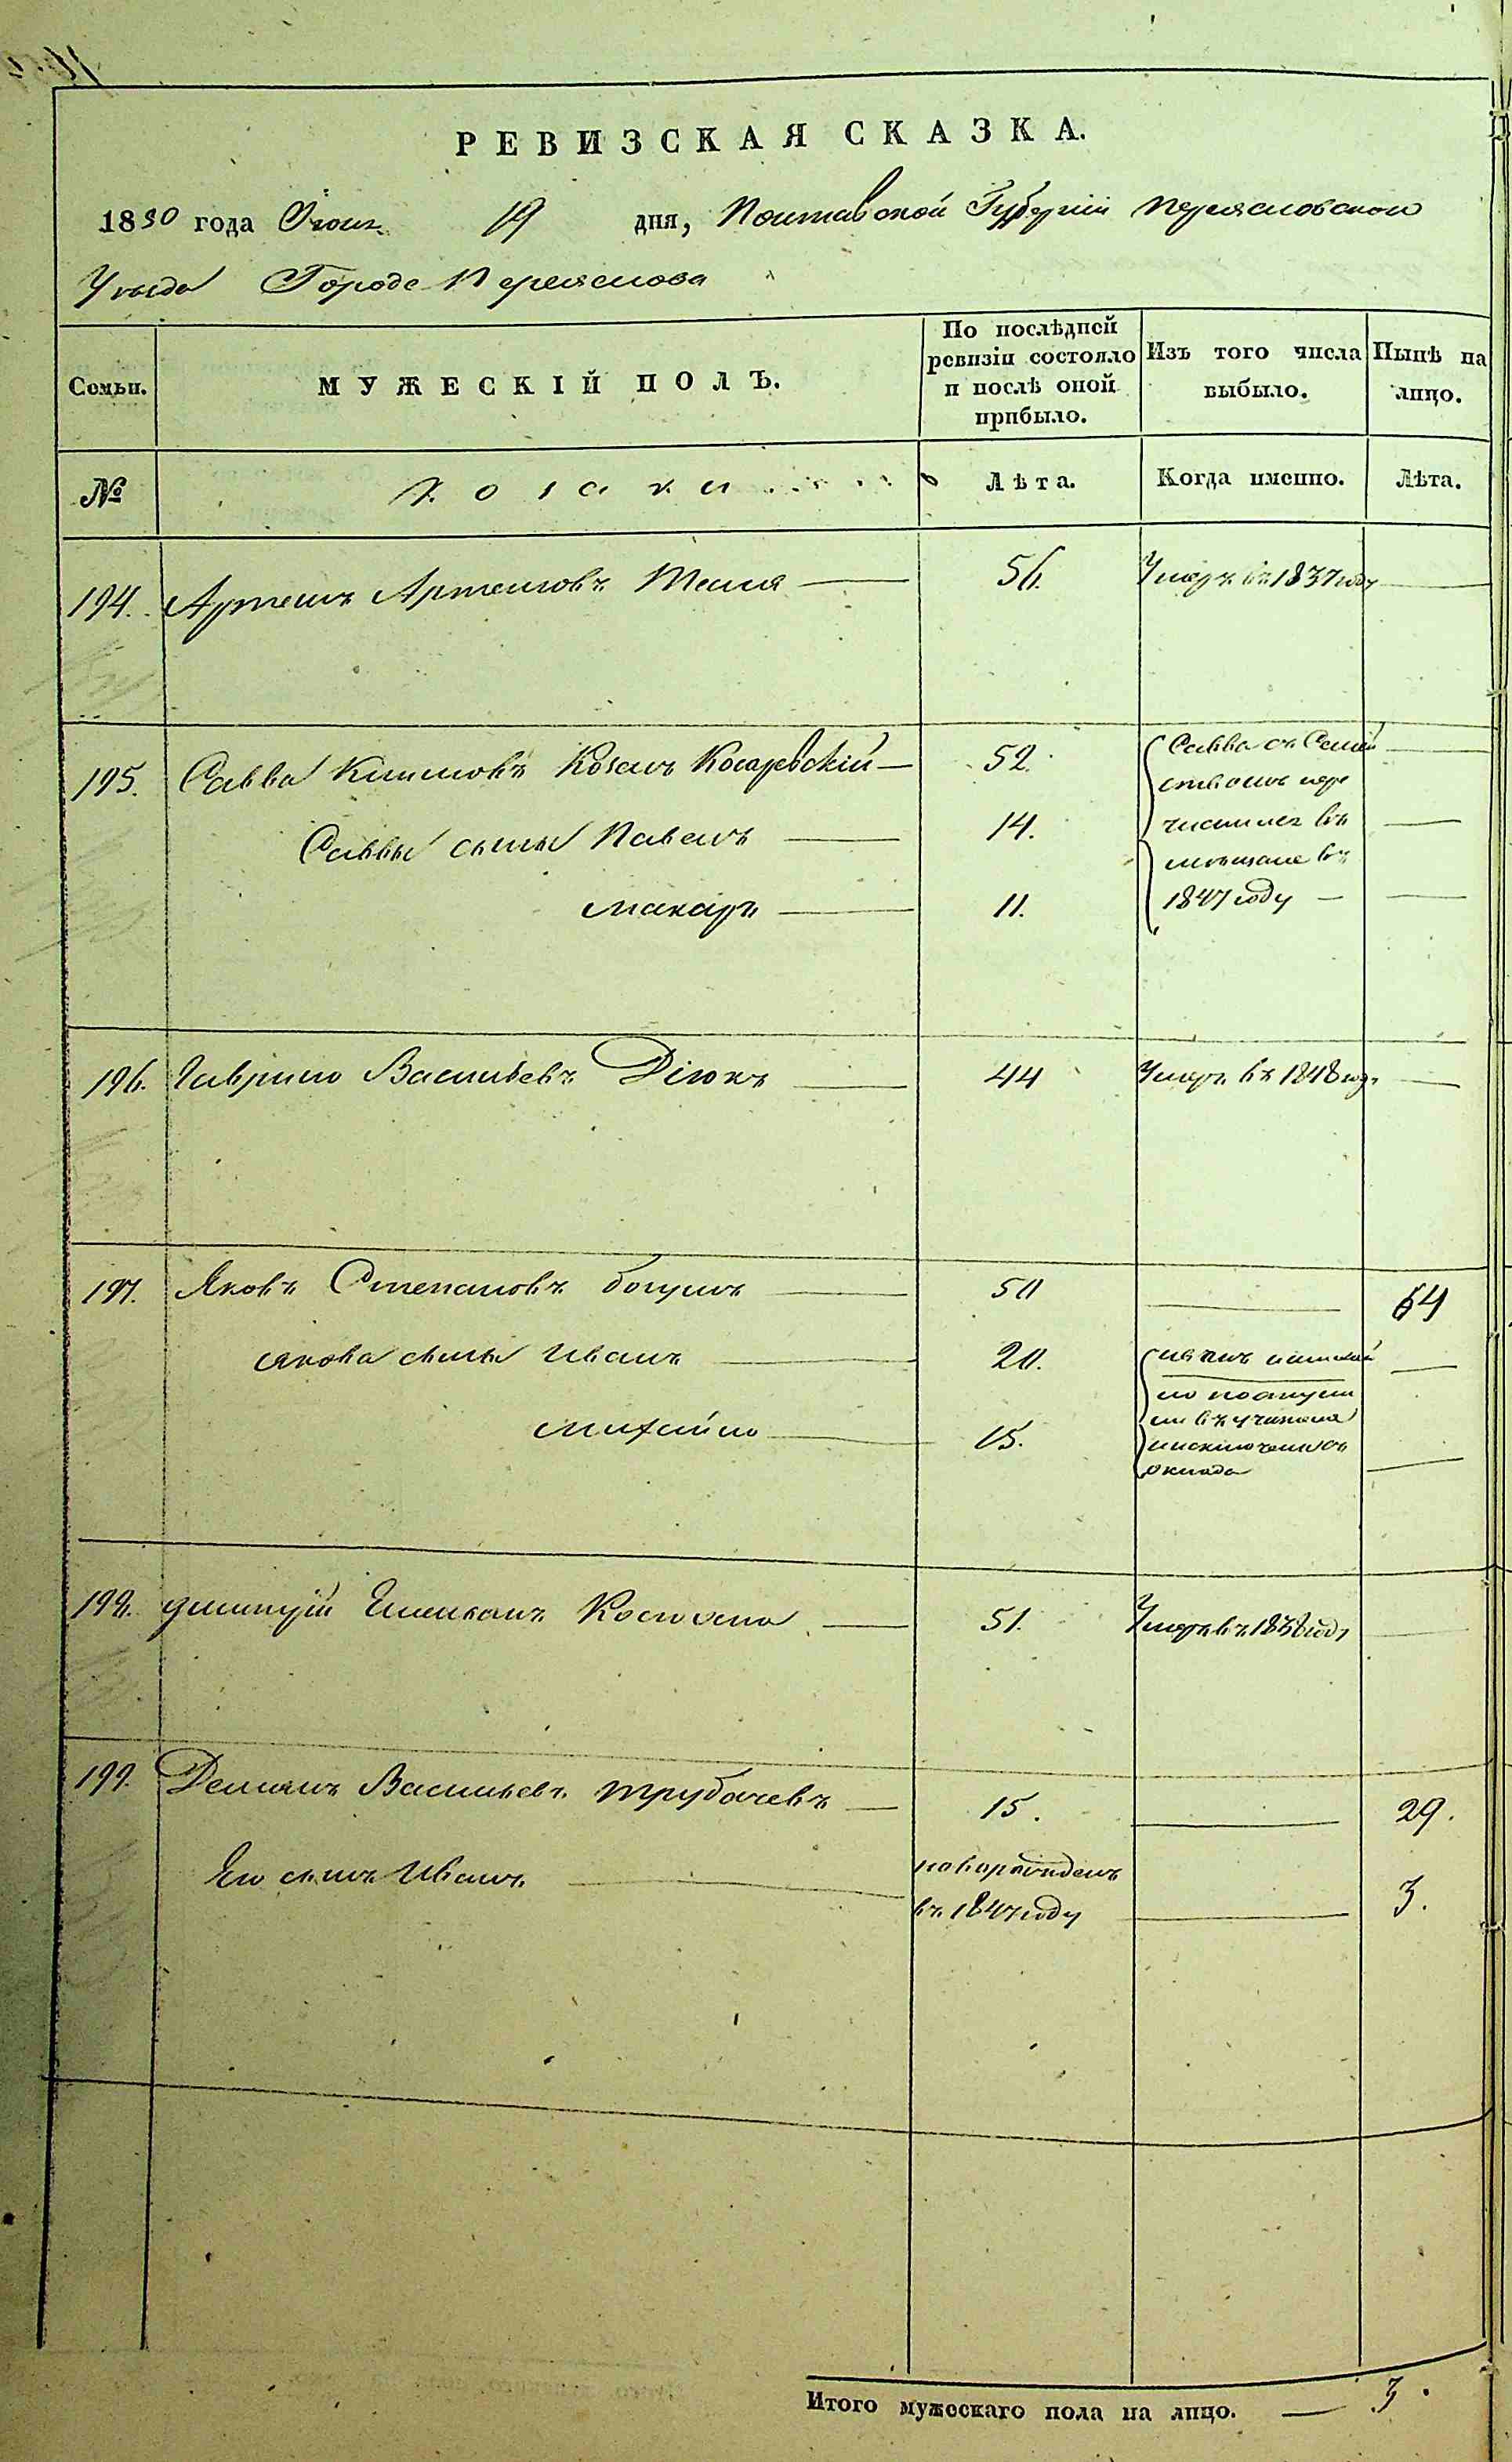 РЕВИЗСКАЯ СКАЗКА.
1850 года Июня 19 дня, Полтавской Губернии Переясловского
Уезда Города Переяслова
Семьи.
МУЖЕСКІЙ ПОЛЪ.
По послѣдней ревизіи состояло и послѣ оной прибыло.
Изъ того числа выбыло.
Нынѣ на лицо.
№
Козаки
Лѣта.
Когда именно.
Лѣта.
194. Артемъ Артемовъ 56. Умеръ въ 1837 году
195. Савва Климовъ Козелъ Косаревскій 52.
Саввы сыны Павелъ 14.
Макаръ 11.
Савва съ Семей
ствомъ пере
численъ въ
мѣщане въ
1847 году
196. Гаврило Васильевъ Дѣюкъ 44 Умеръ въ 1848 год.
197. Яковъ Степановъ 50 64
Якова сыны Иванъ 20.
Михайло 15.
исключенъ
оклада
198. Дмитрій 51. Умеръ въ 1838 году
199. Демьянъ Васильевъ Трубачевъ 15. 29.
Его сынъ Иванъ новорожденъ
въ 1847 году 3.
Итого мужескаго пола на лицо. 3.